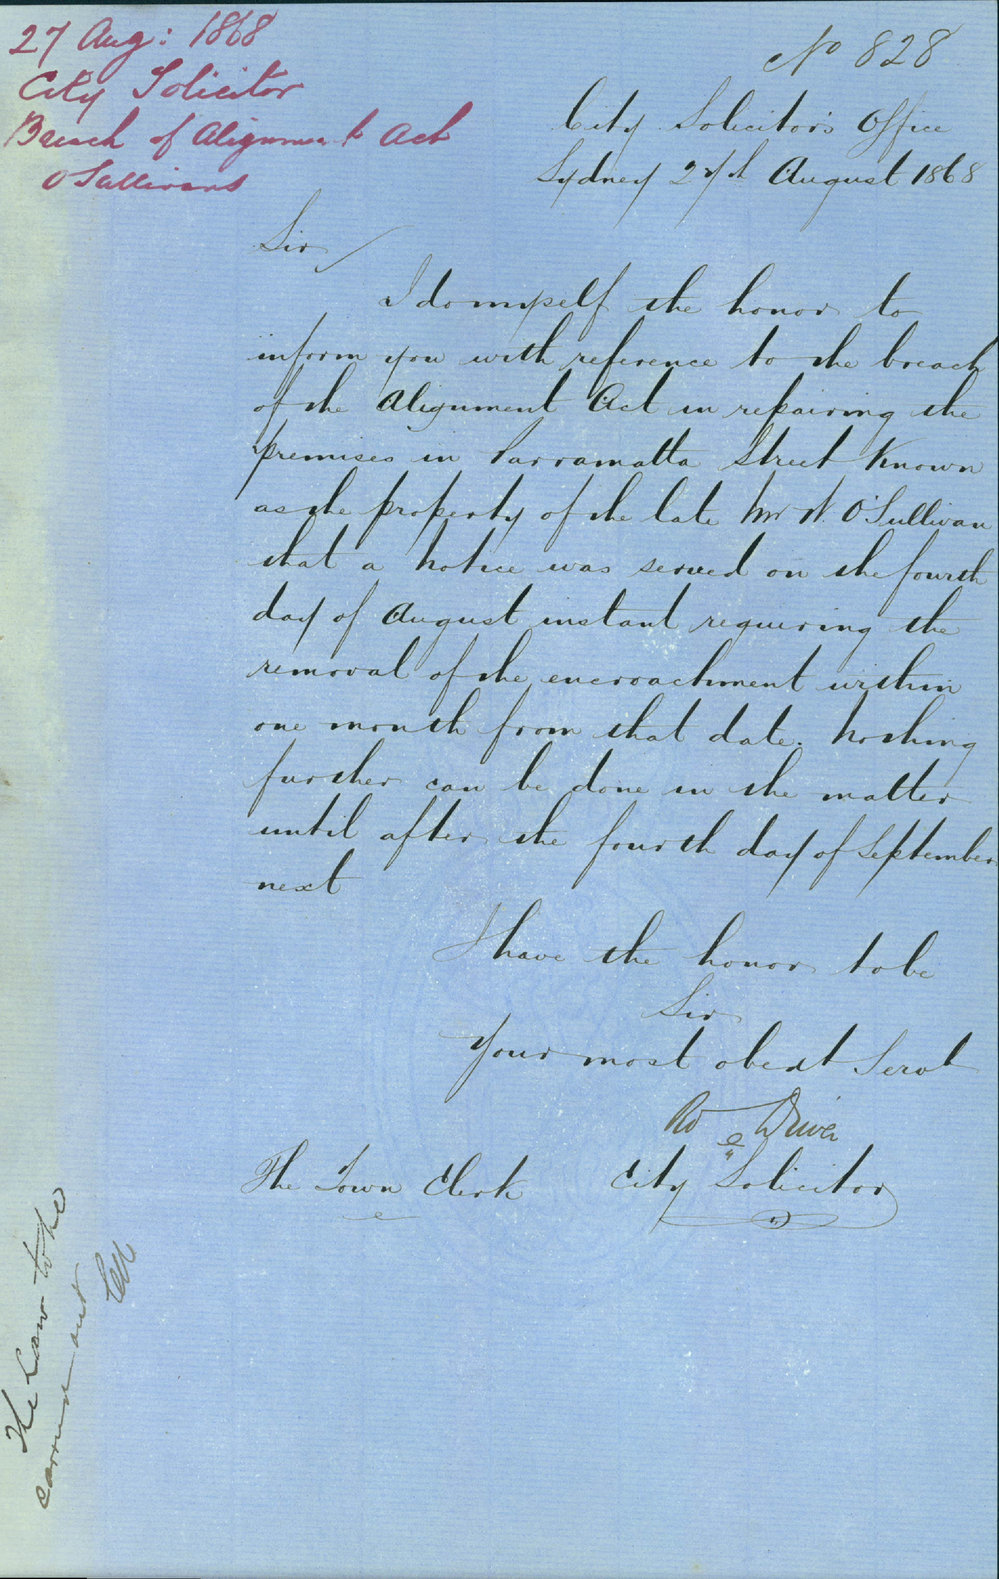 27 Aug: 1868
City Solicitor
Breach of Alignment Act
O'Sullivans
No 828
City Solicitor's Office
Sydney 27th August 1868
Sir
I do myself the honor to
inform you with reference to the breach
of the Alignment Act in repairing the
premises in Parramatta Street Known
as the property of the late Mr N. O'Sullivan
that a notice was served on the fourth
day of August instant requiring the
removal of the encroachment within
one month from that date. Nothing
further can be done in the matter
until after the fourth day of September
next
I have the honor to be
Sir
Your most obedt Servt
Rd Driver
City Solicitor
The Town Clerk
The Law to be
carried out